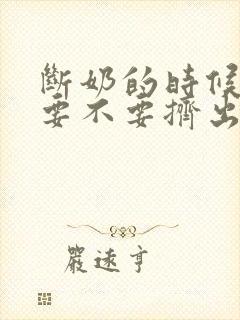 斷奶的時候
要不要擠出
嚴遠亨